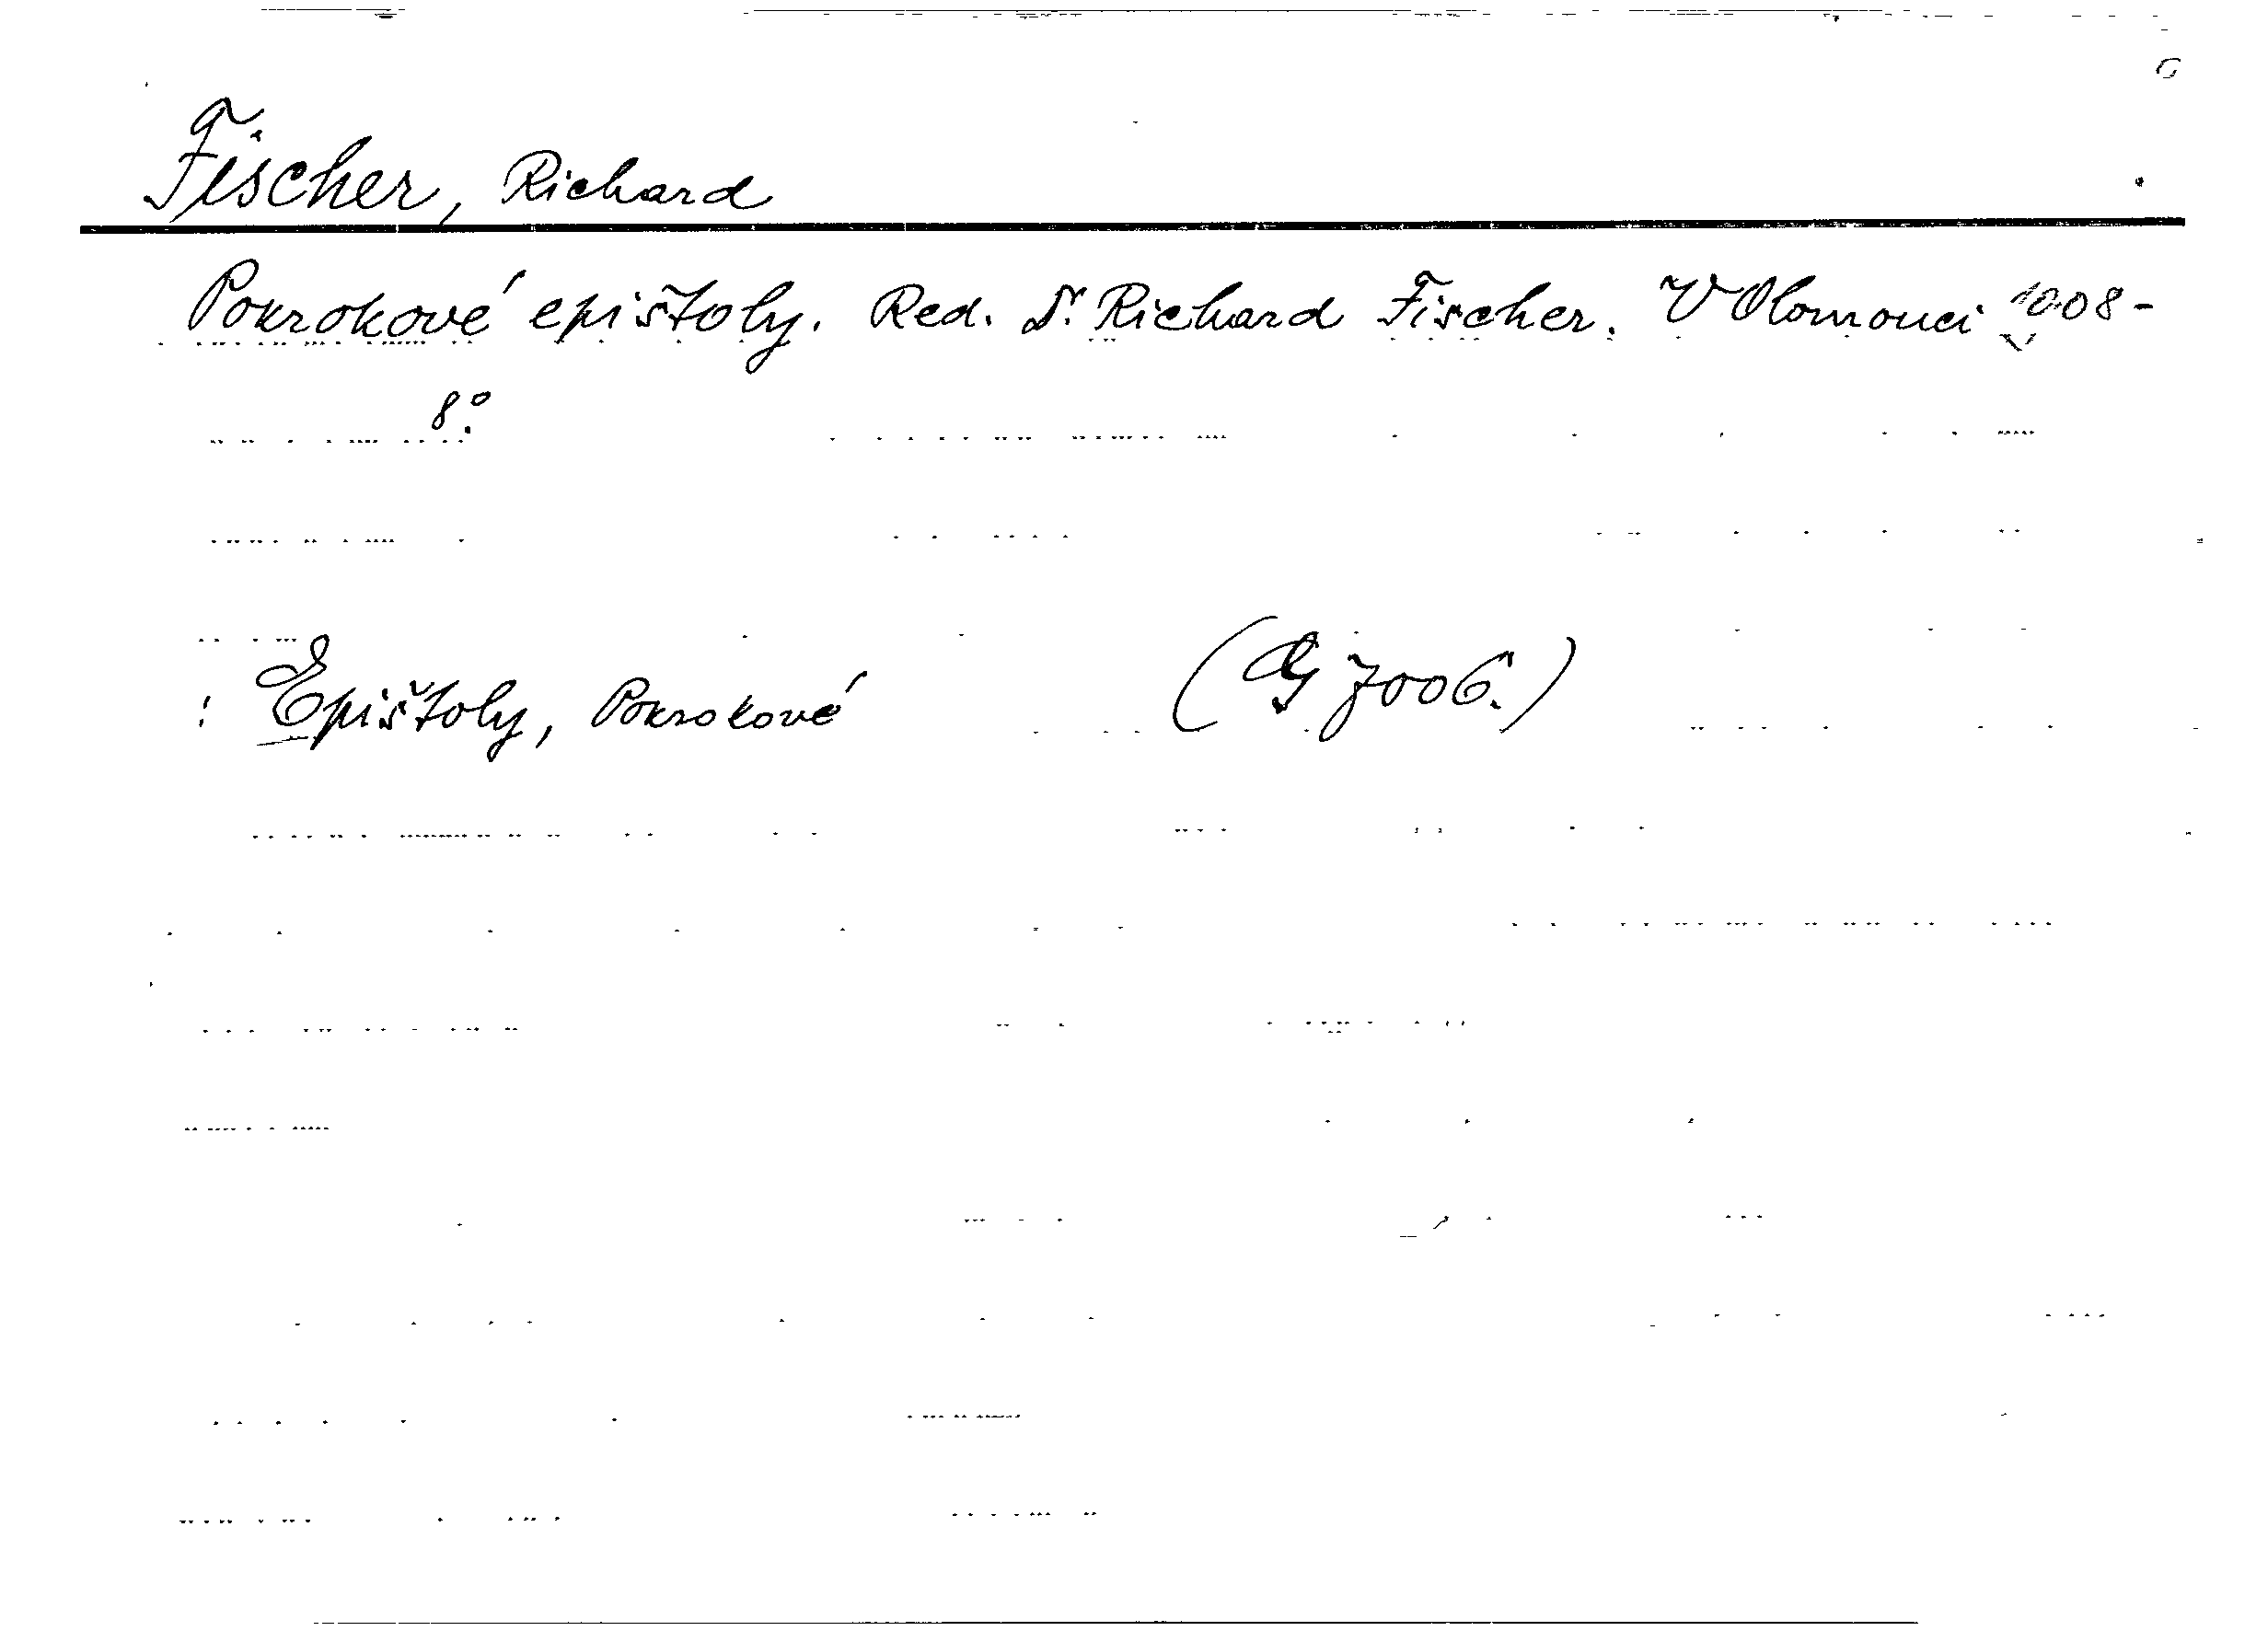 Fischer, Richard
Pokrokové epištoly. Red. Dr. Richard Fischer. V Olomouci 1908-
8°.
: Epištoly, Pokrokové (G 7006.)